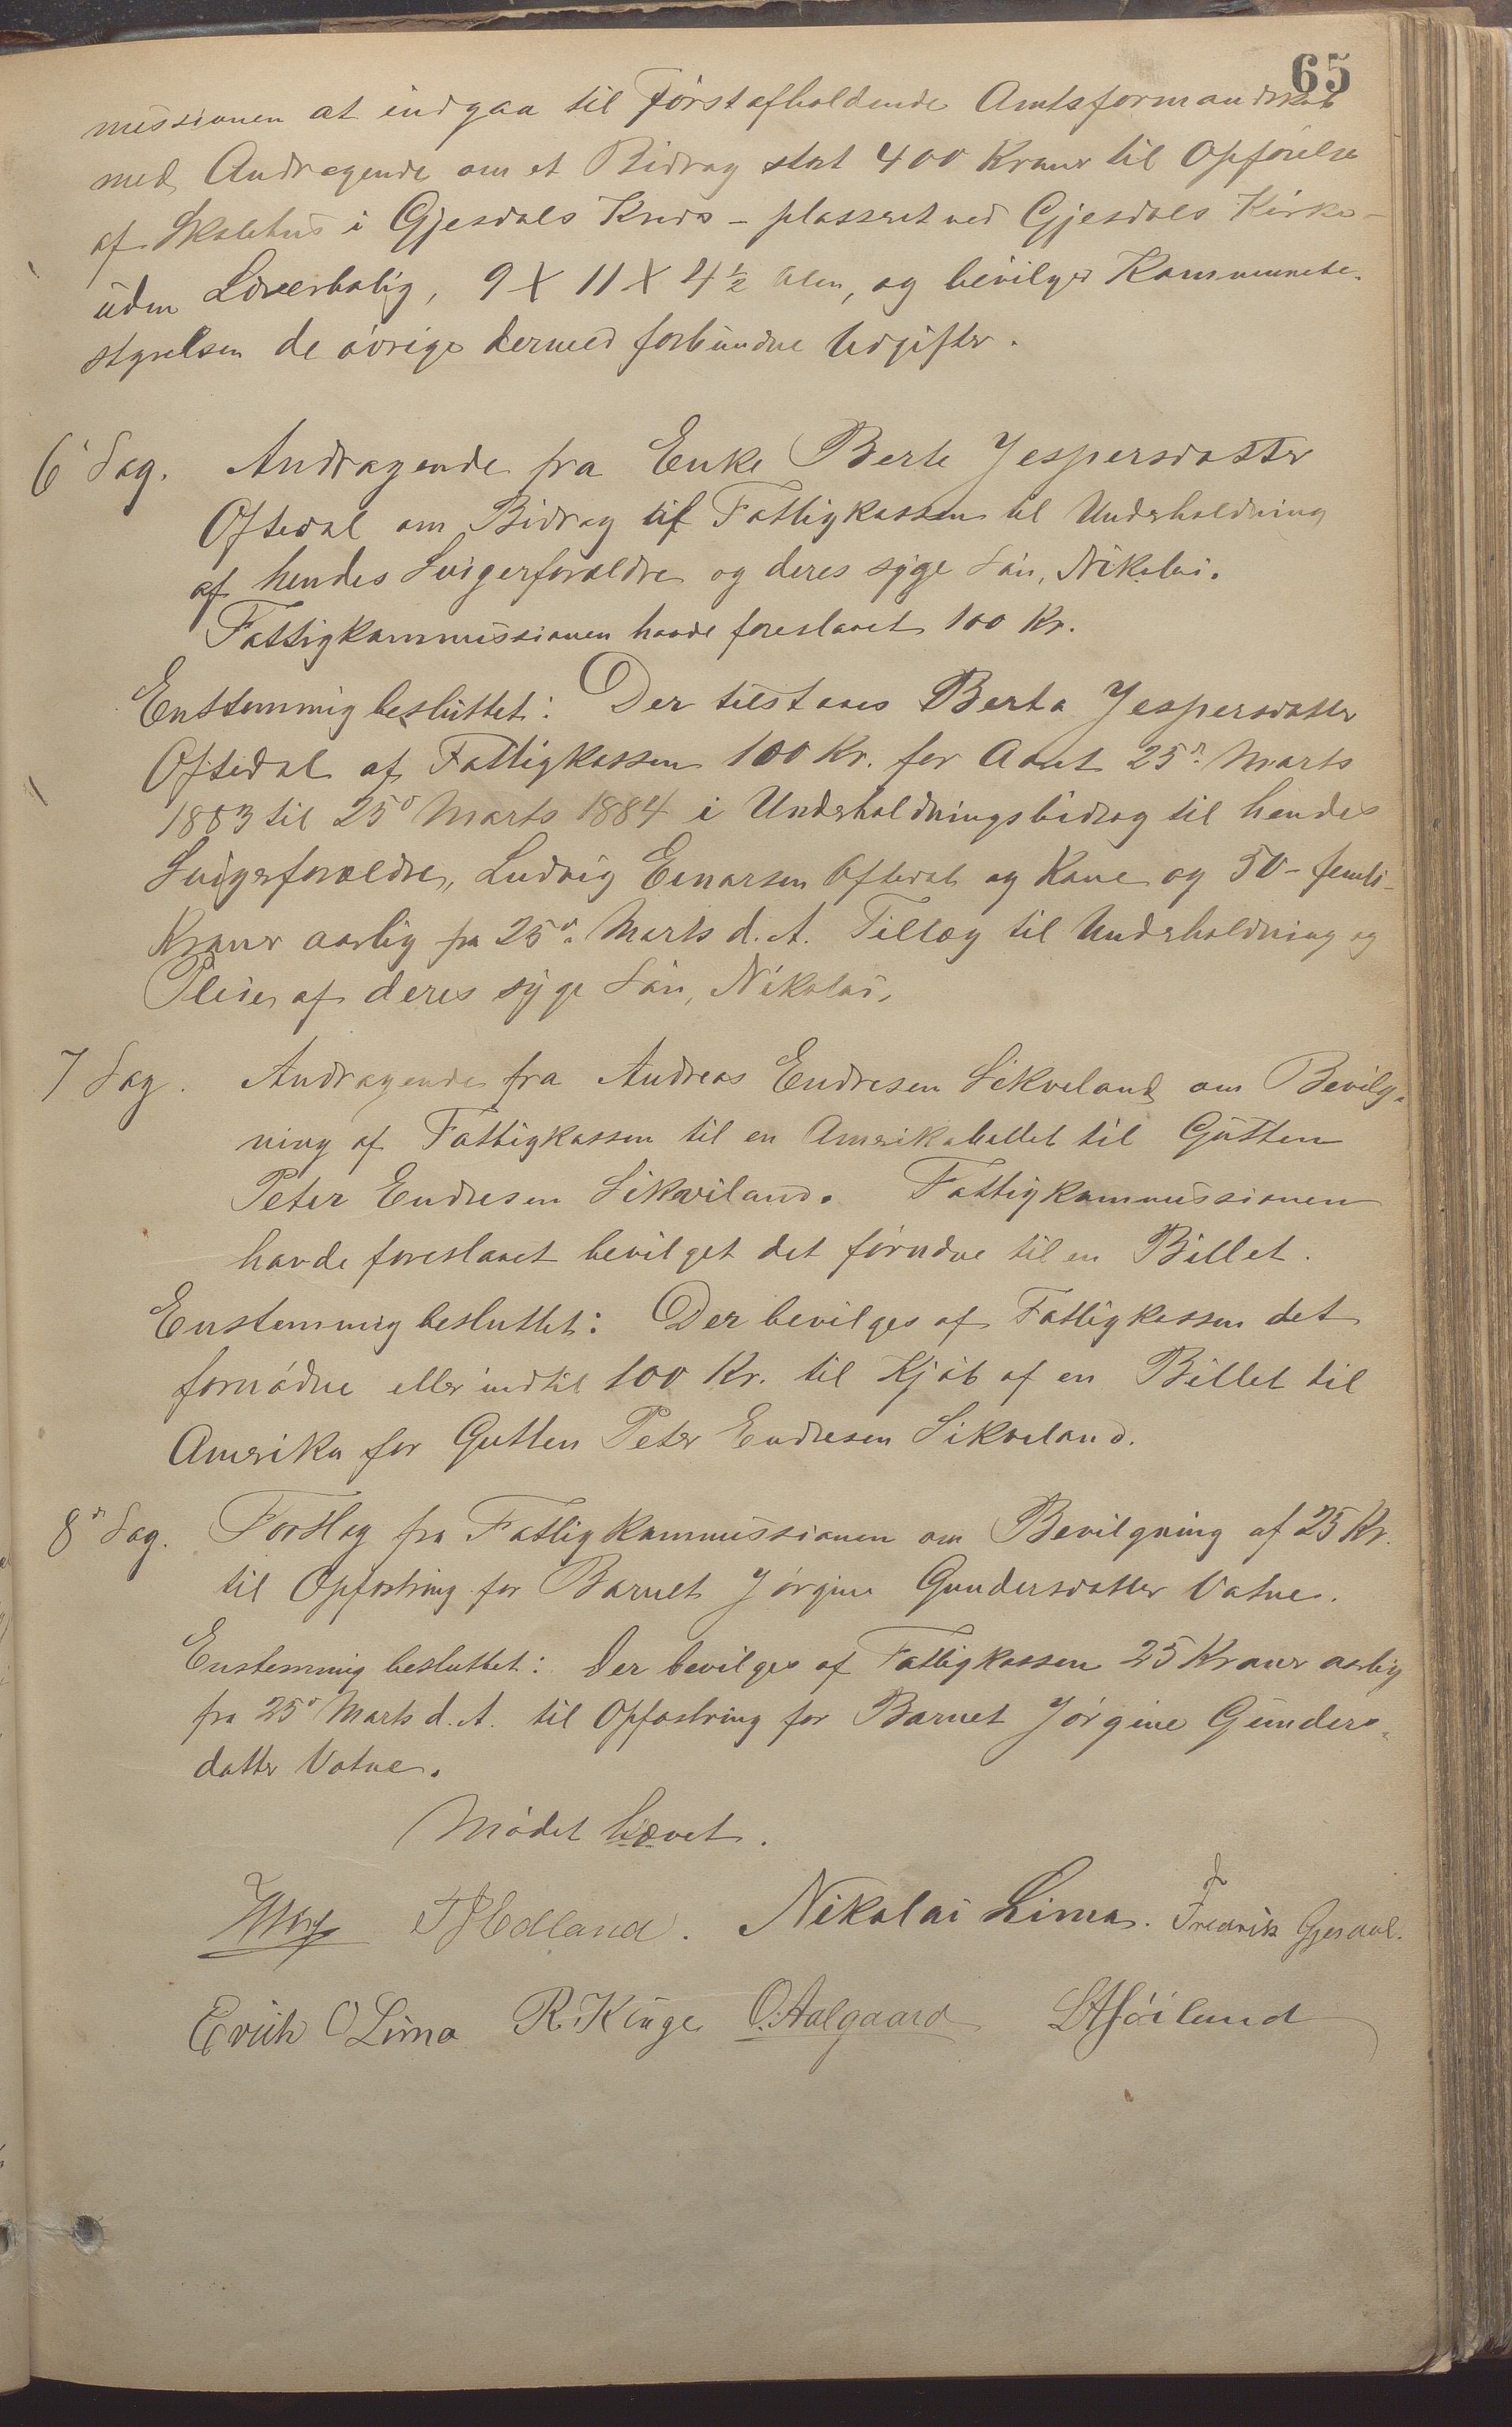 65
missionen at indgaa til først afholdende Amtsformandskab
med Andragende om et Bidrag stort 400 Kroner til Opførelse
af Skolehus i Gjesdals Kreds – plasseret ved Gjesdals Kirke –
uden Lærerbolig, 9 X 11 X 4 1/2 Alen, og bevilger Kommunebe-
styrelsen de øvrige dermed forbundne Udgifter.
6' Sag. Andragende fra Enke Berte Jespersdatter
Oftedal om Bidrag af Fattigkassen til Underholdning
af hendes Svigerforældre og deres syge Søn, Nikolai.
Fattigkommissionen havde foreslaaet 100 Kr.
Enstemmig besluttet: Der tilstaaes Berta Jespersdatter
Oftedal af Fattigkassen 100 Kr. for Aaret 25de Marts
1883 til 25de Marts 1884 i Underholdningsbidrag til hendes
Svigerforældre, Ludvig Einarsen Oftedal og Kone og 50 – femti –
Kroner aarlig fra 25de Marts d. A. Tillæg til Underholdning og
Pleie af deres syge Søn, Nikolai.
7 Sag. Andragende fra Andreas Endresen Sikveland om Bevilg-
ning af Fattigkassen til en Amerikabillet til Gutten
Peter Endresen Sikveland. Fattigkommissionen
havde foreslaaet bevilget det fornødne til en Billet.
Enstemmig besluttet: Der bevilges af Fattigkassen det
fornødne eller indtil 100 Kr. til Kjøb af en Billet til
Amerika for Gutten Peter Endresen Sikveland.
8de Sag. Forslag fra Fattigkommissionen om Bevilgning af 25 Kr.
til Opfostring for Barnet Jørgine Gundersdatter Vatne.
Enstemmig besluttet: Der bevilges af Fattigkassen 25 Kroner aarlig
fra 25de Marts d. A. til Opfostring for Barnet Jørgine Gunders-
datter Vatne.
Mødet hævet.
Hedland. Nikolai Lima. Fredrik Gjesdal.
Erich O Lima R. Kinge O. Aalgaard Høiland